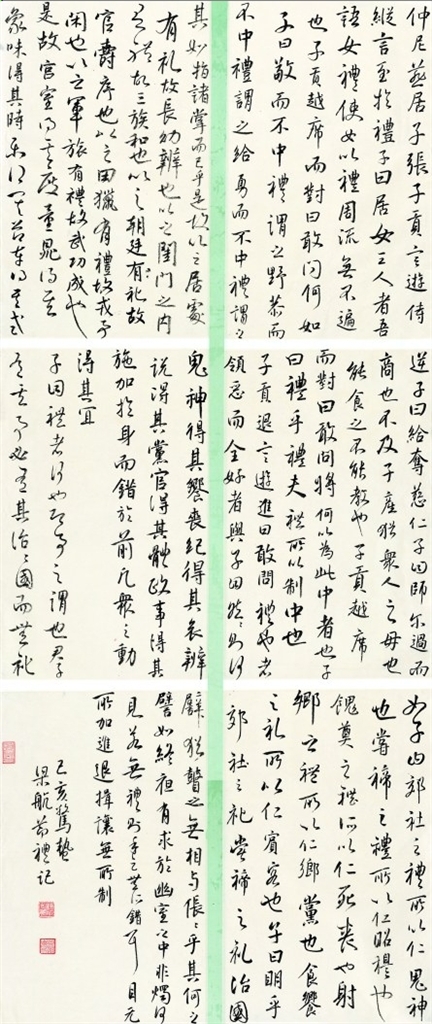 仲尼燕居子張子貢言遊侍
縱言至於禮子曰居女三人者吾
語女禮使女以禮周流無不遍
也子貢越席而對曰敢問何如
子曰敬而不中禮謂之野恭而
不中禮謂之給勇而不中禮謂之
逆子曰給奪慈仁子曰師爾過而
商也不及子產猶衆人之母也
能食之不能教也子貢越席
而對曰敢問將何以為此中者也子
曰禮乎禮夫禮所以制中也
子貢退言遊進曰敢問禮也者
領惡而全好者與子曰然然則何
如子曰郊社之禮所以仁鬼神
也嘗禘之禮所以仁昭穆也
饋奠之禮所以仁死喪也射
鄉之禮所以仁鄉黨也食饗
之禮所以仁賓客也子曰明乎
郊社之礼嘗禘之礼治國
其如指諸掌而已乎是故以之居處
有礼故長幼辨也以之閨門之内
有禮故三族和也以之朝廷有礼故
官爵序也以之田獵有禮故戎事
閑也以之軍旅有禮故武功成也
是故宮室得其度量鼎得其
象味得其時樂得其節車得其式
鬼神得其饗喪紀得其哀辨
說得其黨官得其體政事得其
施加於身而錯於前凡衆之動
得其宜
子曰禮者何也即事之謂也君子
有其事必有其治治國而無礼
譬猶瞽之無相與倀倀乎其何之
譬如終夜有求於幽室之中非燭何
見若無禮則手足無所錯耳目無
所加進退揖讓無所制
己亥驚蟄
梁航節禮記